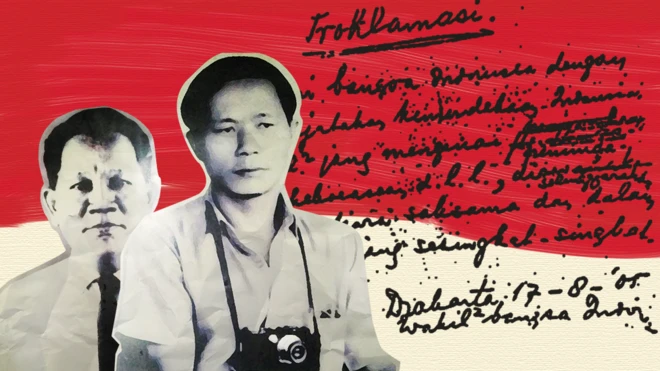 Proklamasi.
i bangsa Indonesia dengan
jatakan kemerdekaan Indonesia.
2 jang mengenai
d.l.l.,
tjara saksama dan dalam
jang sesingkat-singkat
Djakarta, 17-8-'05
Wakil2 bangsa Indon